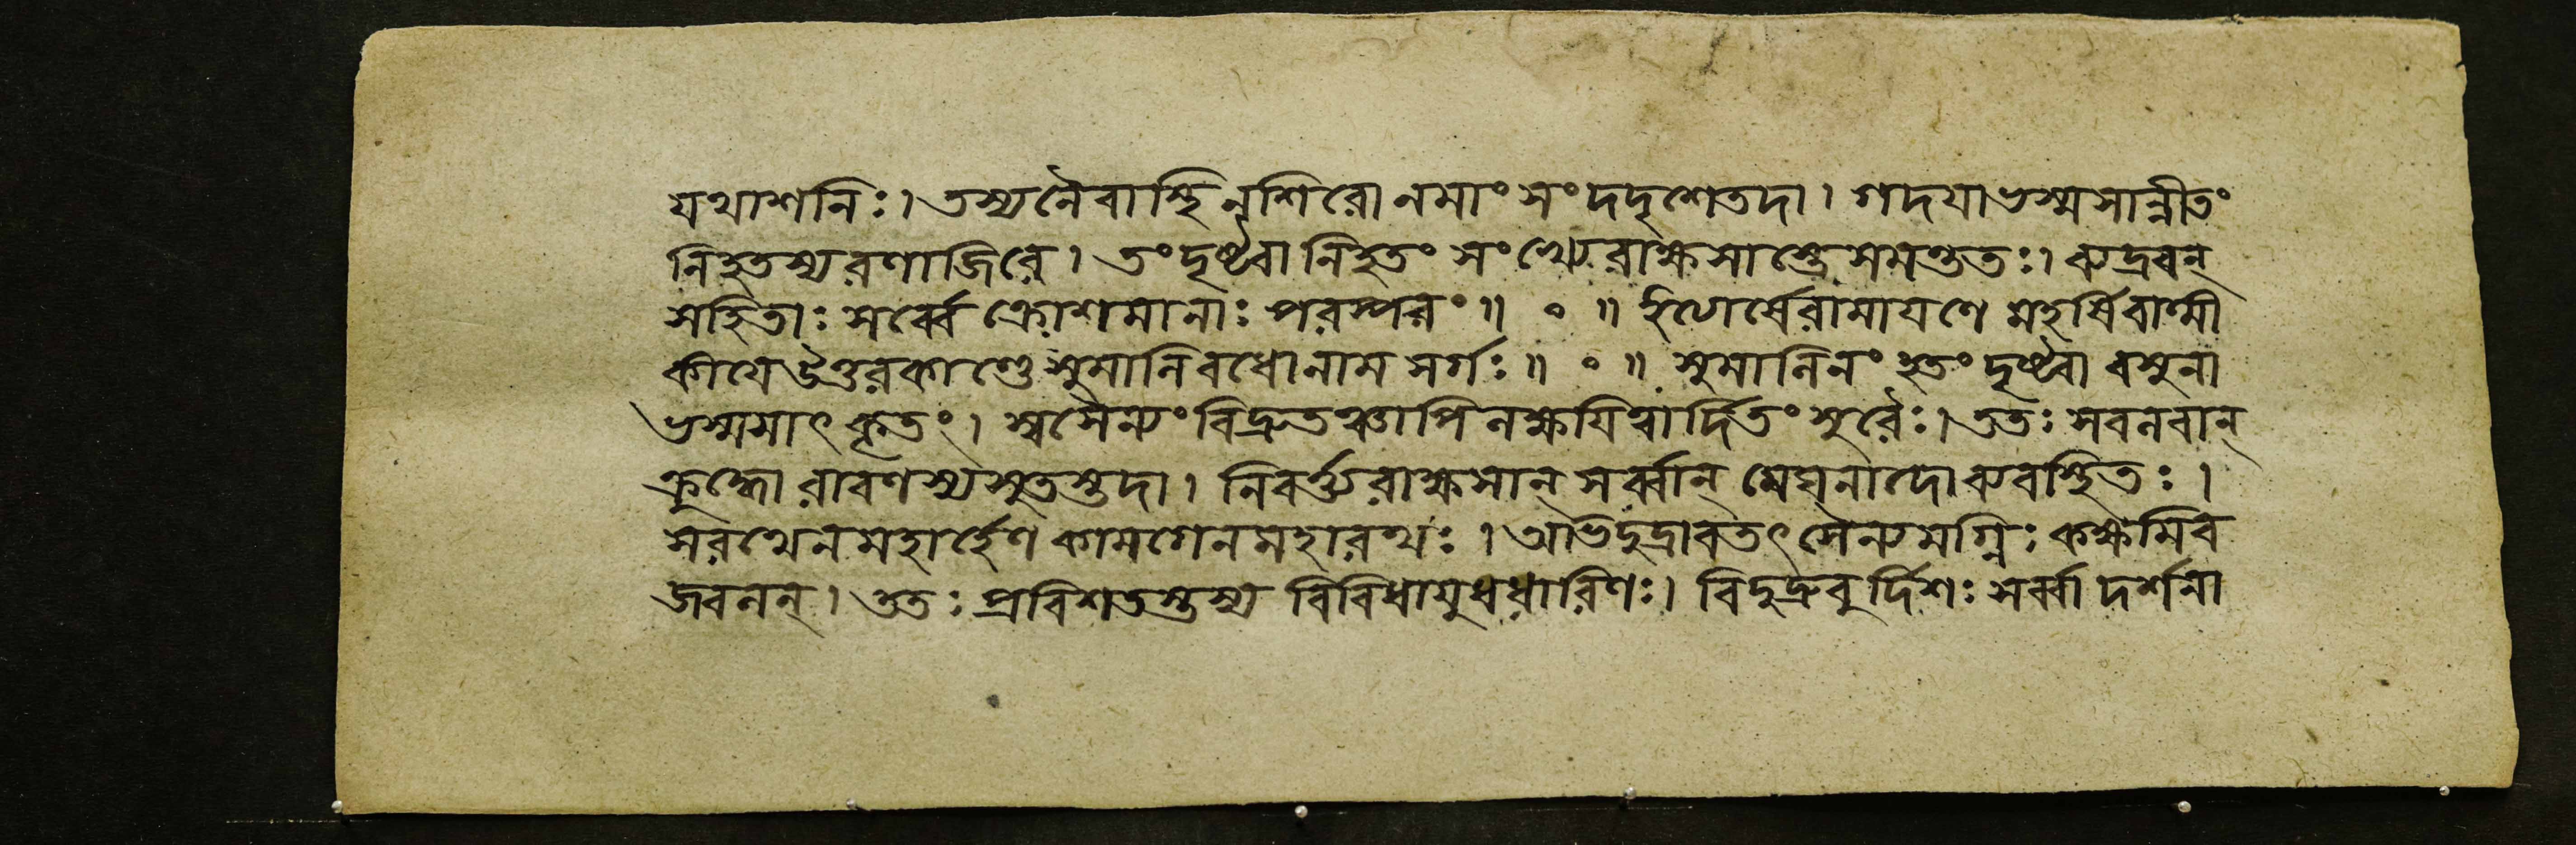 যথাশনিঃ। তস্যনৈবাস্থিনশিরোনমাংসংদদৃশেতদা। গদযাভস্মসান্নীতং
নিহতস্যরণাজিরে। তংদৃষ্ট্বানিহতংসংখ্যেরাক্ষসাস্ত্রেসমন্ততঃ। ব্যদ্রবন্
সহিতাঃসর্ব্বেক্রোশমানাঃপরস্পরং॥ ॰ ॥ ইত্যার্ষেরামাযণেমহর্ষিবাল্মী
কীযেউত্তরকাণ্ডেসুমালিবধোনামসর্গঃ॥ ॰ ॥ সুমালিনংহতংদৃষ্ট্বাবসুনা
ভস্মসাৎকৃতং। স্বসৈন্যংবিদ্রুতঞ্চাপিলক্ষযিত্বার্দিতংসুরৈঃ। ততঃসবলবান্
ক্রুদ্ধোরাবণস্যসুতস্তদা। নিবর্ত্ত্যরাক্ষসান্সর্ব্বান্মেঘনাদোব্যবস্থিতঃ।
সরথেনমহার্হেণকামগেনমহারথঃ। অভিদুদ্রাবতৎসৈন্যমগ্নিঃকক্ষমিব
জ্বলন্। ততঃপ্রবিশতস্তস্যবিবিধাযুধধারিণঃ। বিদুদ্রুবুর্দিশঃসর্ব্বাদর্শনা